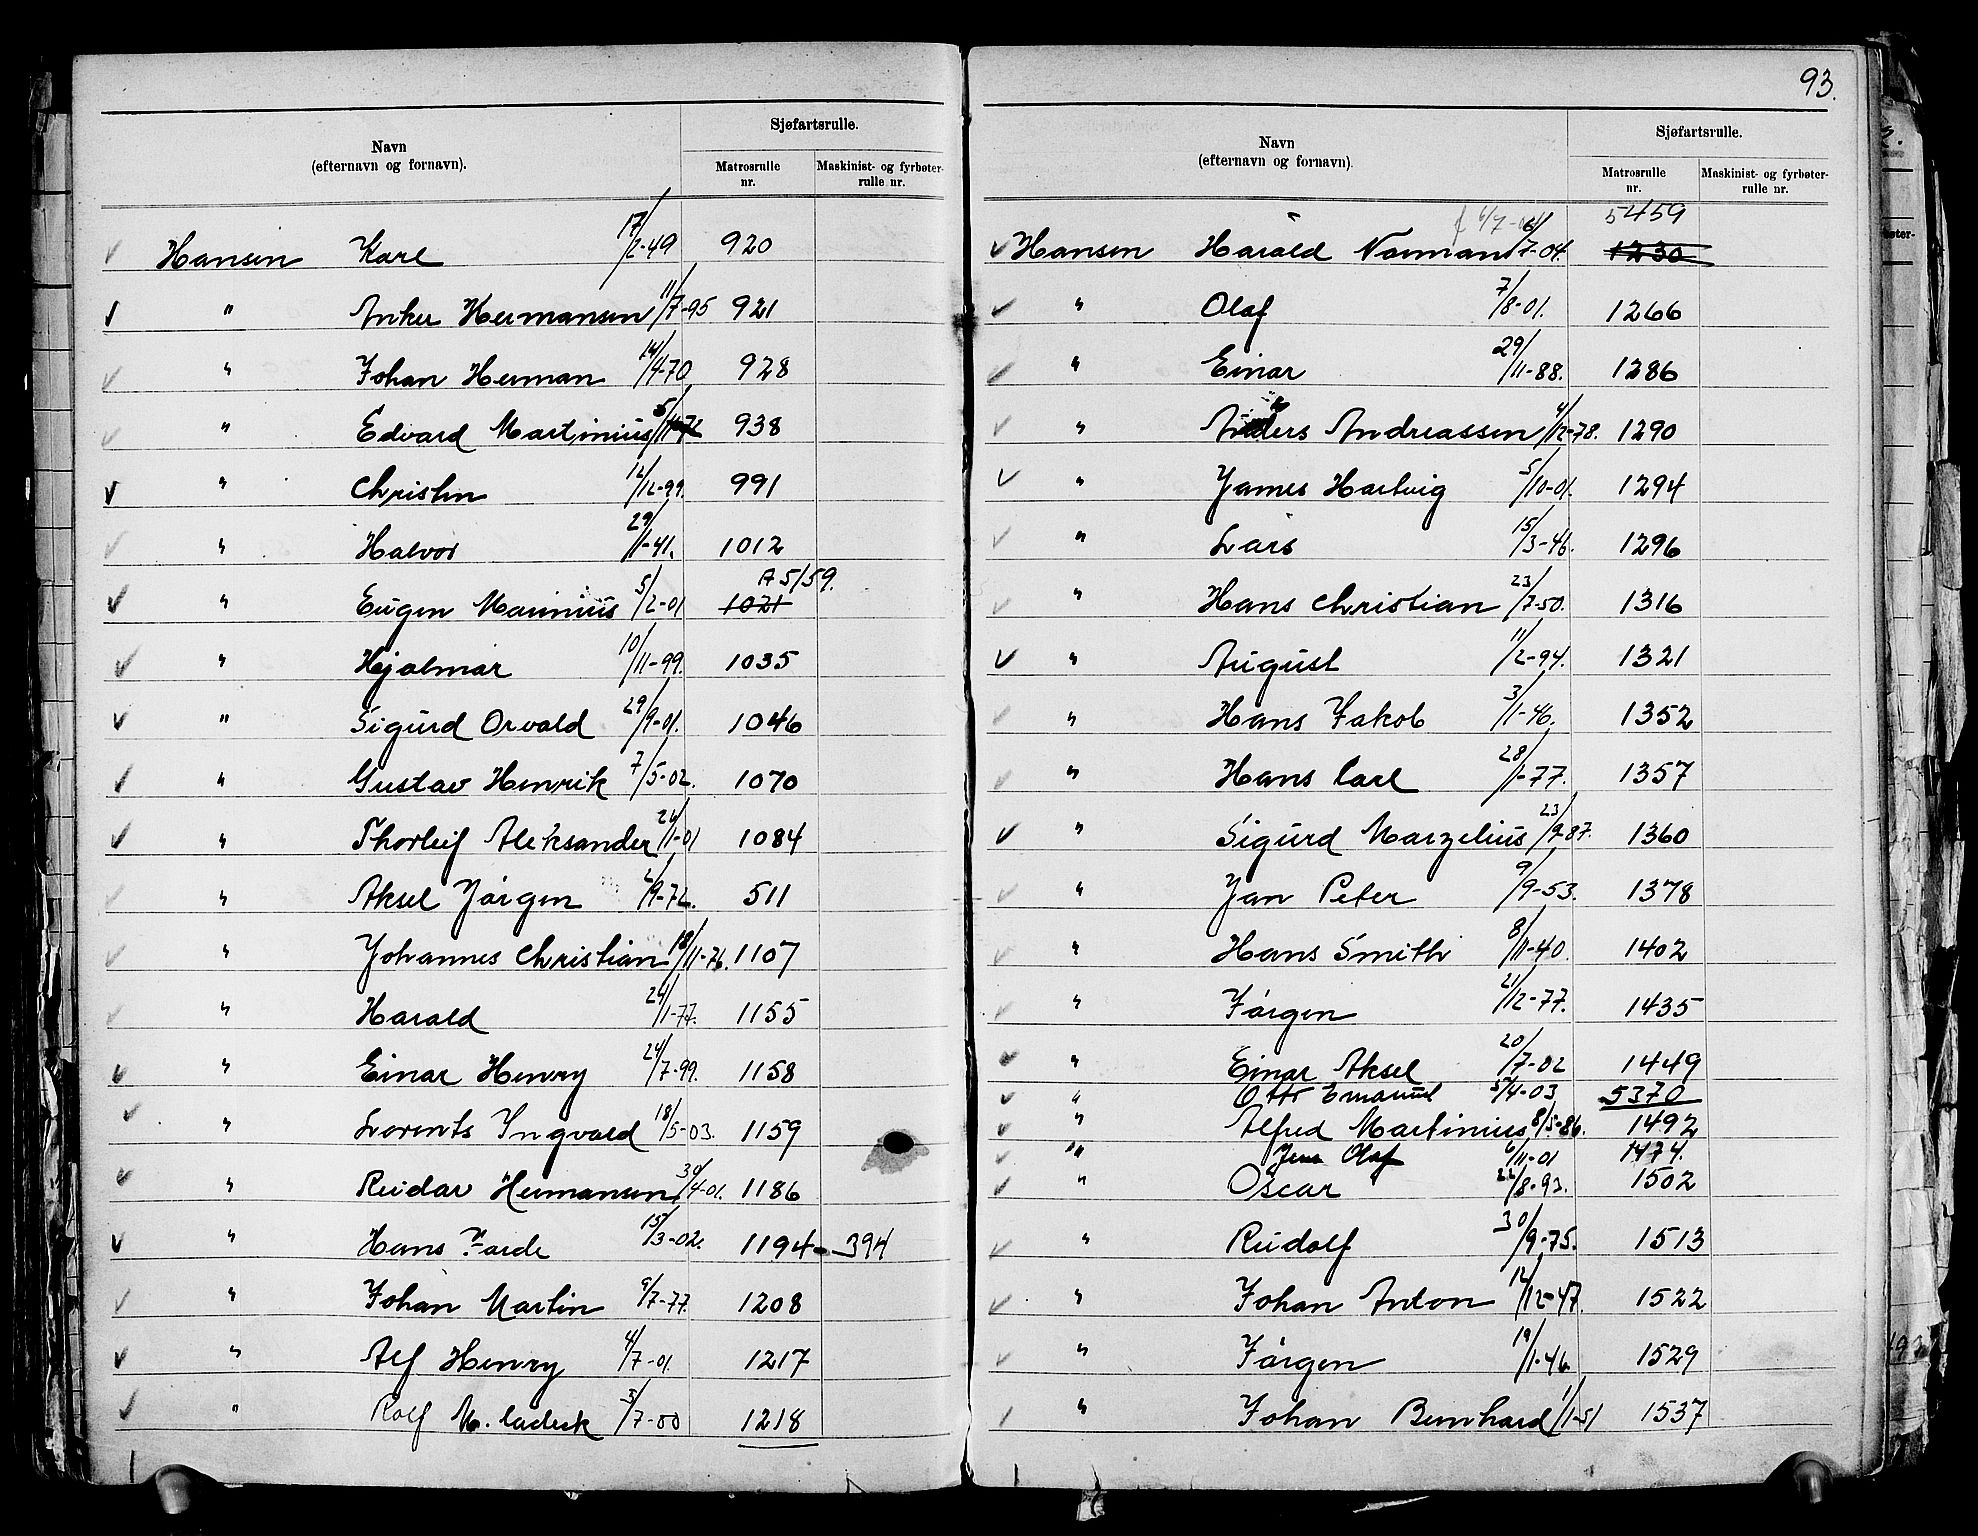 Navn
(efternavn og fornavn).
Sjøfartsrulle.
Matrosrulle nr.
Maskinist- og fyrbøter-rulle nr.
Hansen Karl 17/2-49 920
" Anker Hermansen 11/7-95 921
" Johan Herman 14/4-70 928
" Edvard Martinius 938
" Christen 12/12-99. 991
" Halvor 29/1-41. 1012
A 5159.
" Eugen Marinius 5/2-01 1021
" Hjalmar 10/11-99. 1035
" Sigurd Orvald 29/9-01. 1046
" Gustav Henrik 7/5-02. 1070
" Thorleif Aleksander 24/1-01 1084
" Aksel Jørgen 2/9-72. 511
" Johannes Christian 18/11-76. 1107
" Harald 24/1-77. 1155
" Einar Henry 24/7-99. 1158
" Lorents Ingvald 18/5-03. 1159
" Reidar Hermansen 30/4-01. 1186
" Hans 15/3-02. 1194 - 394
" Johan Martin 9/7-77. 1208
" Alf Henry 4/7-01. 1217
" Rolf 3/7-00 1218
93.
Navn
(efternavn og fornavn).
Sjøfartsrulle.
Matrosrulle nr.
Maskinist- og fyrbøter-rulle nr.
5459
Hansen Harald Normann 6/7-04. 1230
" Olaf 7/8-01. 1266
" Einar 29/11-88. 1286
" Anders Andreassen 4/12-78. 1290
" James Hartvig 5/10-01. 1294
" Lars 15/3-46. 1296
" Hans Christian 23/7-50. 1316
" August 11/2-94. 1321
" Hans Jakob 3/1-46. 1352
" Hans Carl 28/1-77. 1357
" Sigurd Marzelius 23/9-87. 1360
" Jan Peter 9/9-53. 1378
" Hans Smith 8/11-40. 1402
" Jørgen 21/12-77. 1435
" Einar Aksel 20/7-02 1449
" Otto Emanuel 5/4-03 5370
" Alfred Martinius 8/5-86. 1492
" Jens Olaf 6/11-01 1474.
" Oscar 22/8-93. 1502
" Rudolf 30/9-75. 1513
" Johan Anton 12/12-47. 1522
" Jørgen 19/1-46. 1529
" Johan Bernhard 1/1-51 1537